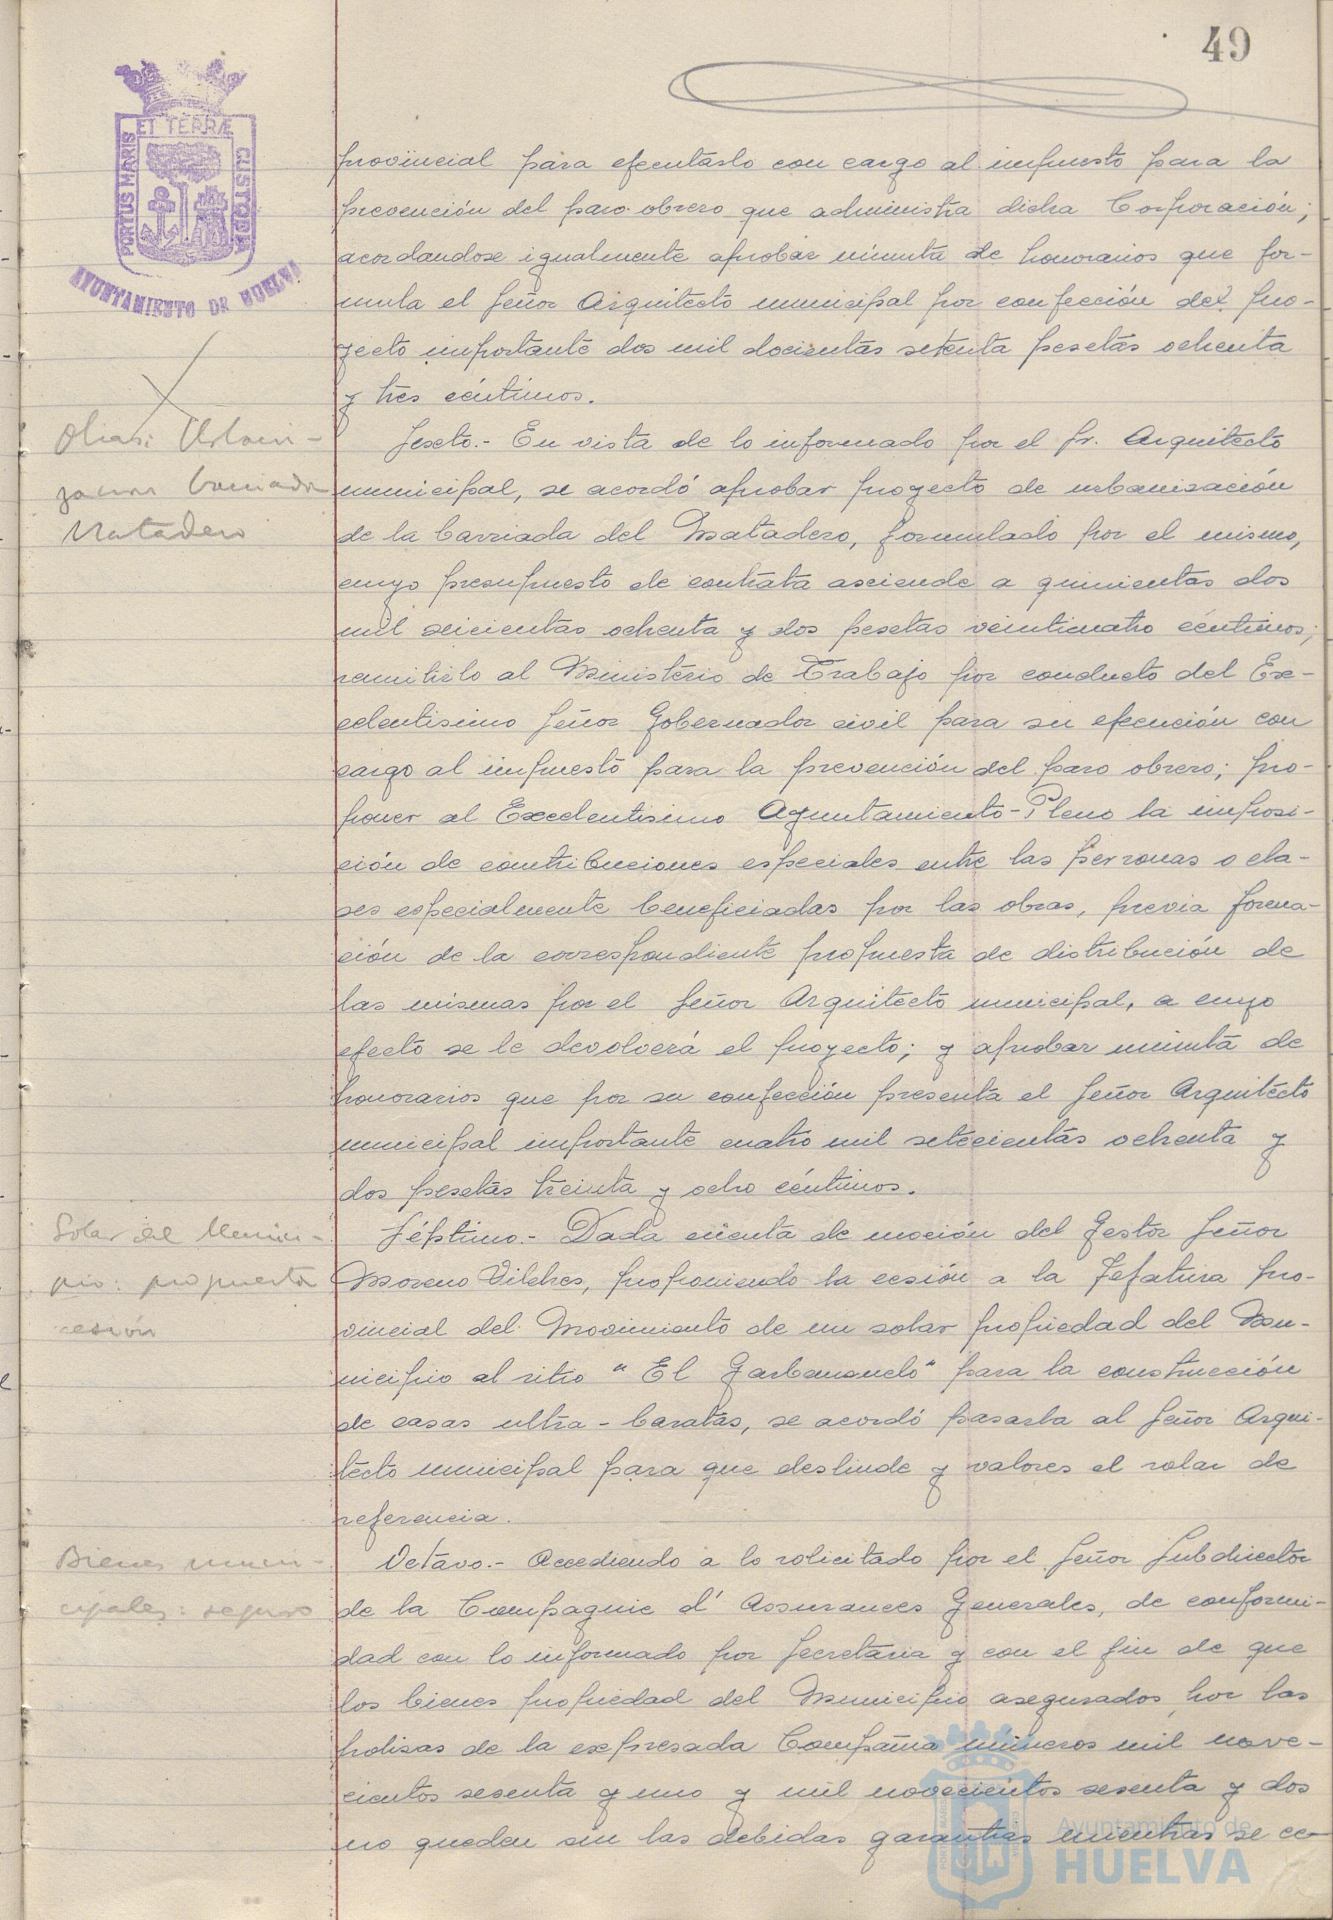 49
PORTUS MARIS
ET TERRÆ
CUSTODIA
AYUNTAMIENTO DE HUELVA
provincial para ejecutarlo con cargo al impuesto para la
prevención del paro obrero que administra dicha Corporación;
acordandose igualmente aprobar minuta de honorarios que for-
mula el Señor Arquitecto municipal por confección del pro-
yecto importante dos mil docientas setenta pesetas ochenta
y tres céntimos.
Obras: Urbani-
zacion barriada
Matadero
Sexto.- En vista de lo informado por el Sr. Arquitecto
municipal, se acordó aprobar proyecto de urbanización
de la barriada del Matadero, formulado por el mismo,
cuyo presupuesto de contrata asciende a quinientas dos
mil seicientas ochenta y dos pesetas veinticuatro céntimos;
remitirlo al Ministerio de Trabajo por conducto del Ex-
celentisimo Señor Gobernador civil para su ejecución con
cargo al impuesto para la prevención del paro obrero; pro-
poner al Excelentisimo Ayuntamiento-Pleno la imposi-
ción de contribuciones especiales entre las personas o cla-
ses especialmente beneficiadas por las obras, previa forma-
ción de la correspondiente propuesta de distribución de
las mismas por el Señor Arquitecto municipal, a cuyo
efecto se le devolverá el proyecto; y aprobar minuta de
honorarios que por su confección presenta el Señor Arquitecto
municipal importante cuatro mil setecientas ochenta y
dos pesetas treinta y ocho céntimos.
Solar del Munici-
pio: propuesta
cesión
Séptimo.- Dada cuenta de moción del Gestor Señor
Moreno Vilches, proponiendo la cesión a la Jefatura pro-
vincial del Movimiento de un solar propiedad del Mu-
nicipio al sitio "El Garbanzuelo" para la construcción
de casas ultra-baratas, se acordó pasarla al Señor Arqui-
tecto municipal para que deslinde y valores el solar de
referencia.
Bienes muni-
cipales: seguro
Octavo.- Accediendo a lo solicitado por el Señor Subdirector
de la Compagnie d' Assurances Generales, de conformi-
dad con lo informado por Secretaria y con el fin de que
los bienes propiedad del Municipio asegurados por las
polizas de la expresada Compañia números mil nove-
cientos sesenta y uno y mil novecientos sesenta y dos
no queden sin las debidas garantias mientras se ce-
Ayuntamiento de
HUELVA